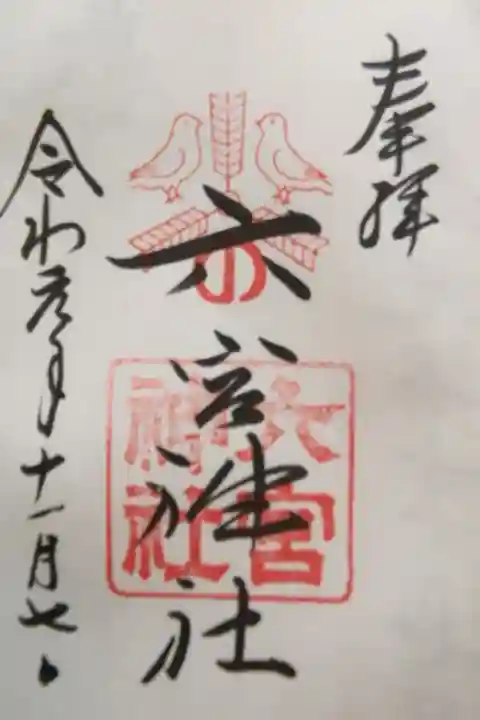 奉拝
六宮神社
六宮神社
令和元年十一月七日